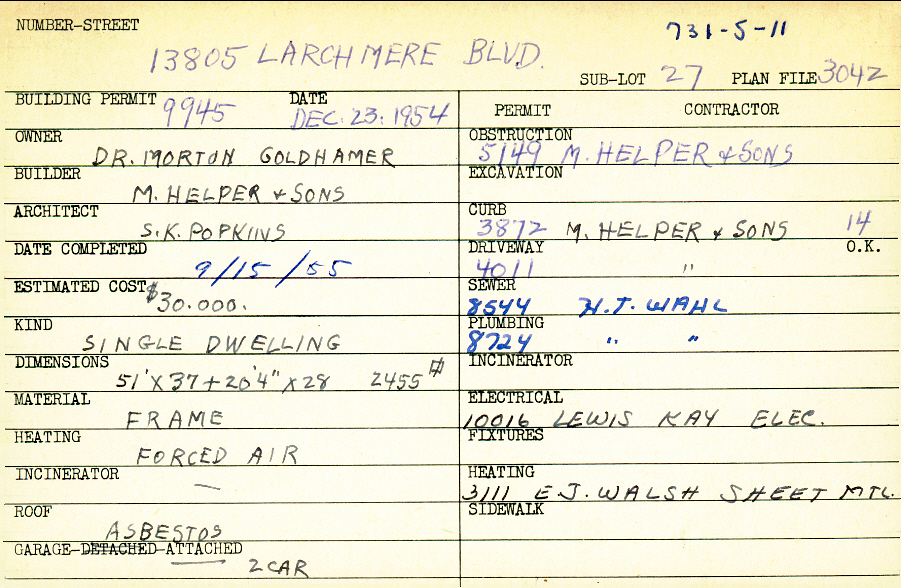 NUMBER-STREET
731-5-11
13805 LARCHMERE BLVD.
SUB-LOT 27 PLAN FILE 3042
BUILDING PERMIT 9945 DATE DEC. 23. 1954
OWNER DR. MORTON GOLDHAMER
BUILDER M. HELPER & SONS
ARCHITECT S.K. POPKINS
DATE COMPLETED 9/15/55
ESTIMATED COST $30.000.
KIND SINGLE DWELLING
DIMENSIONS 51'X37+20'4"X28 2455#
MATERIAL FRAME
HEATING FORCED AIR
INCINERATOR —
ROOF ASBESTOS
GARAGE-DETACHED-ATTACHED
2 CAR
PERMIT CONTRACTOR
OBSTRUCTION 5149 M. HELPER & SONS
EXCAVATION
CURB 3872 M. HELPER & SONS 14
DRIVEWAY 4011 " O.K.
SEWER 8544 H.T. WAHL
PLUMBING 8724 " "
INCINERATOR
ELECTRICAL 10016 LEWIS KAY ELEC.
FIXTURES
HEATING 3111 E.J. WALSH SHEET MTL.
SIDEWALK